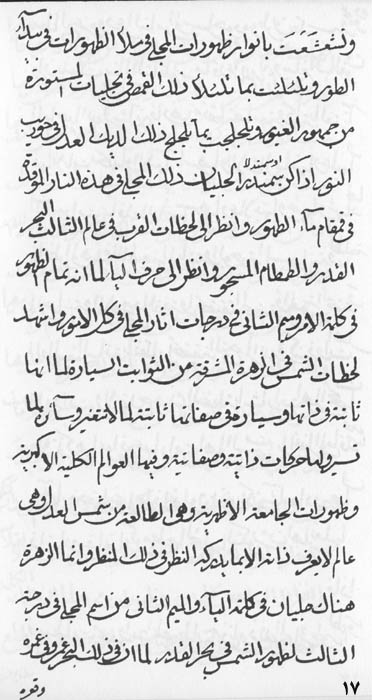 وتشعشعت بانوار ظهورات المجلى فى سلاء الظهورات فى سيناء
الطور وتلئلئت بما تلئلأ ذلك القمص فى تجليات المستورة
من جمهور الغيور وتلجلجت بما تلجلج ذلك الديك العدل فى
النور اذا كر سمندر الجليان ذلك المجلى فى هذه النار الموقدة
او سمندلا
فى قمقام ماء الطهور وانظر الى لحظات القرب فى عالم الثالث البحر
القدر والطمطام المسجور وانظر الى حرف الياء لما انه تمام الظهور
فى كلمة الامر وميم الثانى فى درجات اثار المجلى فى كل الامور واشهد
لحظات الشمس فى الزهرة المشرقة من الثوابت السيارة لما انها
ثابتة فى ذاتها وسيارة فى صفاتها ثابتة لما لا تتغير وسيارة لما
تسير ولها حركات ذاتية وصفاتية وفيها العوالم الكلية الاكبرية
وظهورات الجامعة الاظهرية وهى الطالعة من شمس العدل وهى
عالم لا يعرف ذاته الا بما يدركه النظر فى ذلك المنظر وانما الزهرة
هناك جليان فى كلمة الياء والميم الثانى من اسم المجلى فى درجة
الثالث لظهور الشمس فى بحر القدر لما ان فى ذلك البحر غمر وفى غمره
وقعره
١٧